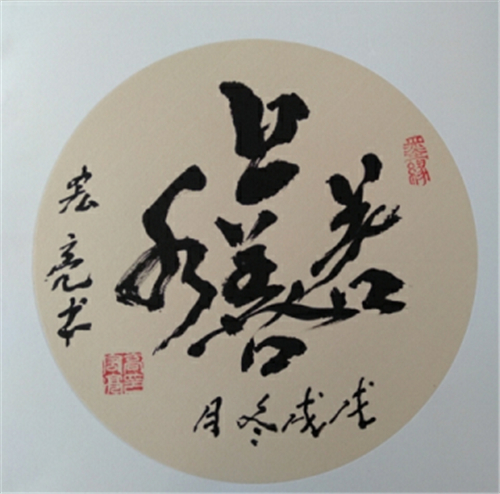 上善若水
戊戌冬月
宏亮书
墨缘